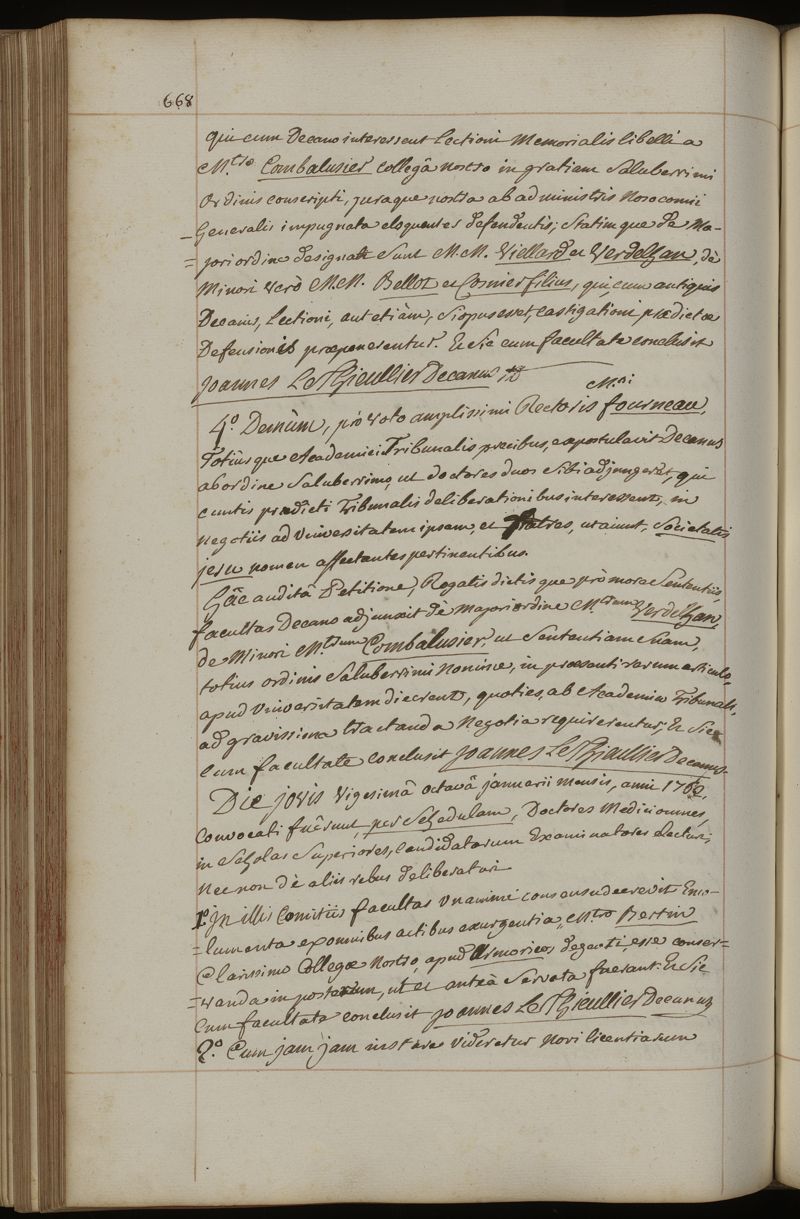 668
qui cum Decano interessent Lectioni Memorialis libelli a
M.tro Combalusier collegâ nostro in gratiam Saluberrimi
Ordinis conscripti, juraque nostra ab administris Nosocomii
Generalis impugnata eloquenter defendentis; Statimque de Ma-
=jori ordine designati Sunt M.M. Viellard et Verdelhan, dè
Minori verò M.M. Bellot et Cosnier filius, qui, cum antiquis
Decanis, Lectioni, aut etiàm, si opus esset, castigationi prædictæ
Defensionis præponerentur. Et Sic cum facultate conclusit
Joannes Le Thieullier Decanus
4.º Demùm, prò voto amplissimi Rectoris M.ri fourneau,
Totiusque Academici Tribunalis precibus, expostulavit Decanus
ab ordine Saluberrimo, ut doctores duos Sibi adjungeret, qui
cunctis prædicti Tribunalis deliberationibus interessent, in
negotiis ad Universitatem ipsam, et fratres, ut aiunt, Societatis
jesu nomen affectantes pertinentibus.
Hâc auditâ Petitione, Rogatis dictisque prò more Sententiis,
facultas Decano adjunxit dè majori ordine M.trum Verdelhan,
de Minori M.trum Combalusier, ut Sententiam Suam,
totius ordinis Saluberrimi Nomine, in præsenti rerum articulo,
apud Universitatem dicerent, quoties, ab Academiæ Tribunali,
ad gravissima tractanda Negotia requirerentur; Et Sic
cum facultate conclusit Joannes Le Thieullier Decanus.
Die jovis vigesimâ octavâ januarii mensis, anni 1762,
Convocati fuêrunt, per Schedulam, Doctores Medici omnes,
in Scholas Superiores, Candidatorum Examinatores electuri;
Nec non dè aliis rebus deliberaturi
1.º In illis Comitiis facultas Unanimi consensu decrevit Emo-
=lumenta ex omnibus actibus exurgentia, M.tro Bertin
Clarissimo Collegæ Nostro, apud Armoricos degenti, esse conser=
=vanda in posterum, ut et anteà Servata fuerant. Et Sic
Cum facultate conclusit Joannes Le Thieullier Decanus
2.º Cum jam jam instare videretur Novi licentiarum